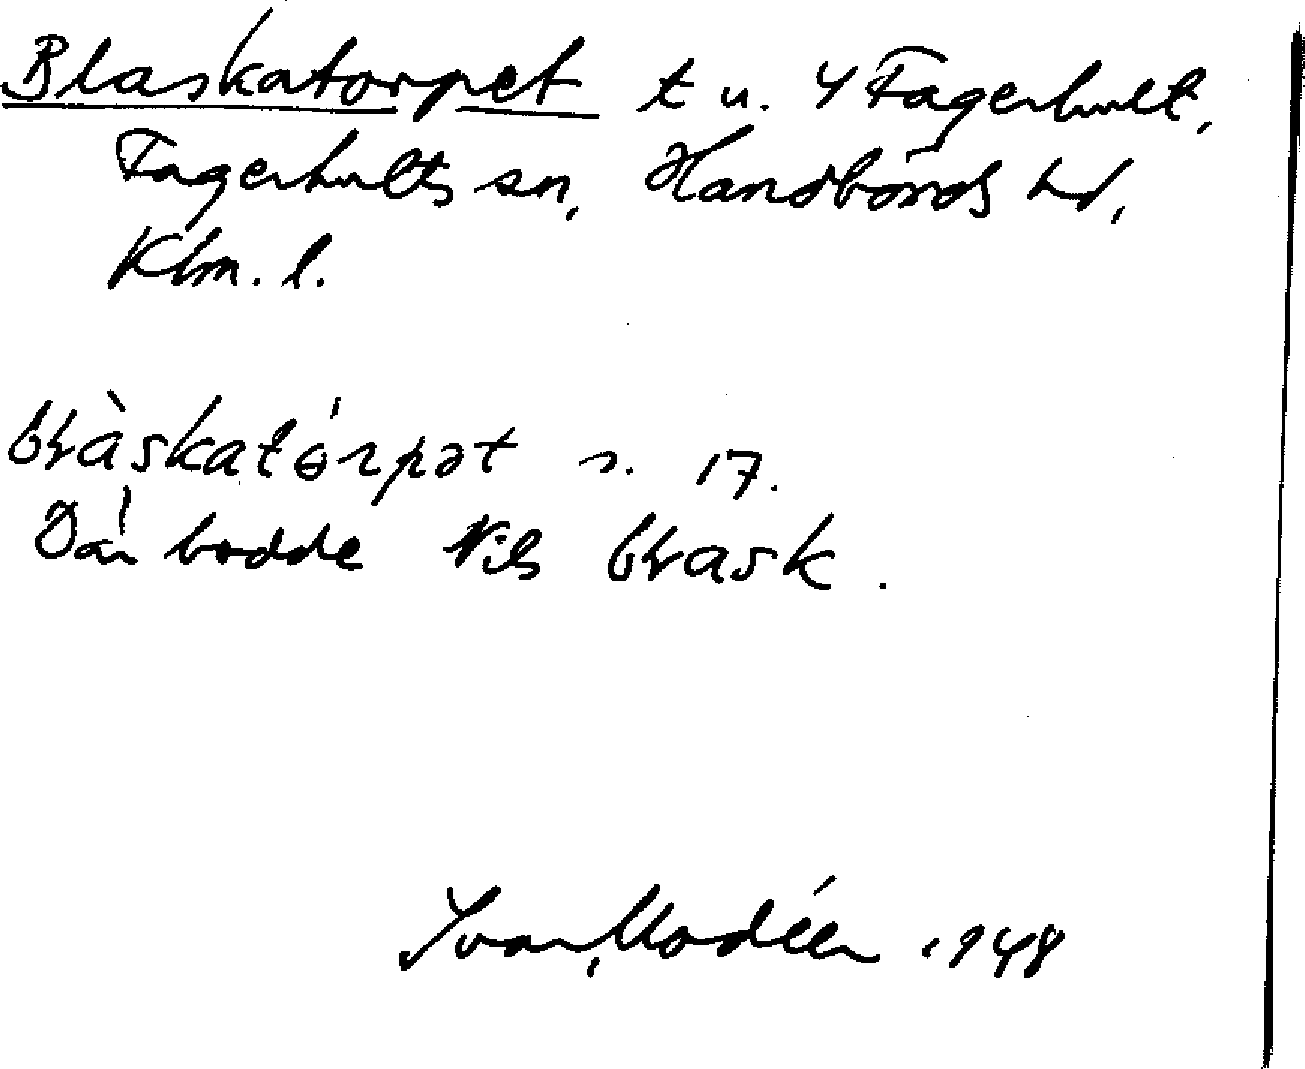 Blaskatorpet t u. 4 Fagerhult,
Fagerhults sn, Handbörds hd,
Klm. l.
blàskatɵ́rpət s. 17.
Där bodde Nils blask.
Ivar Modéer 1948